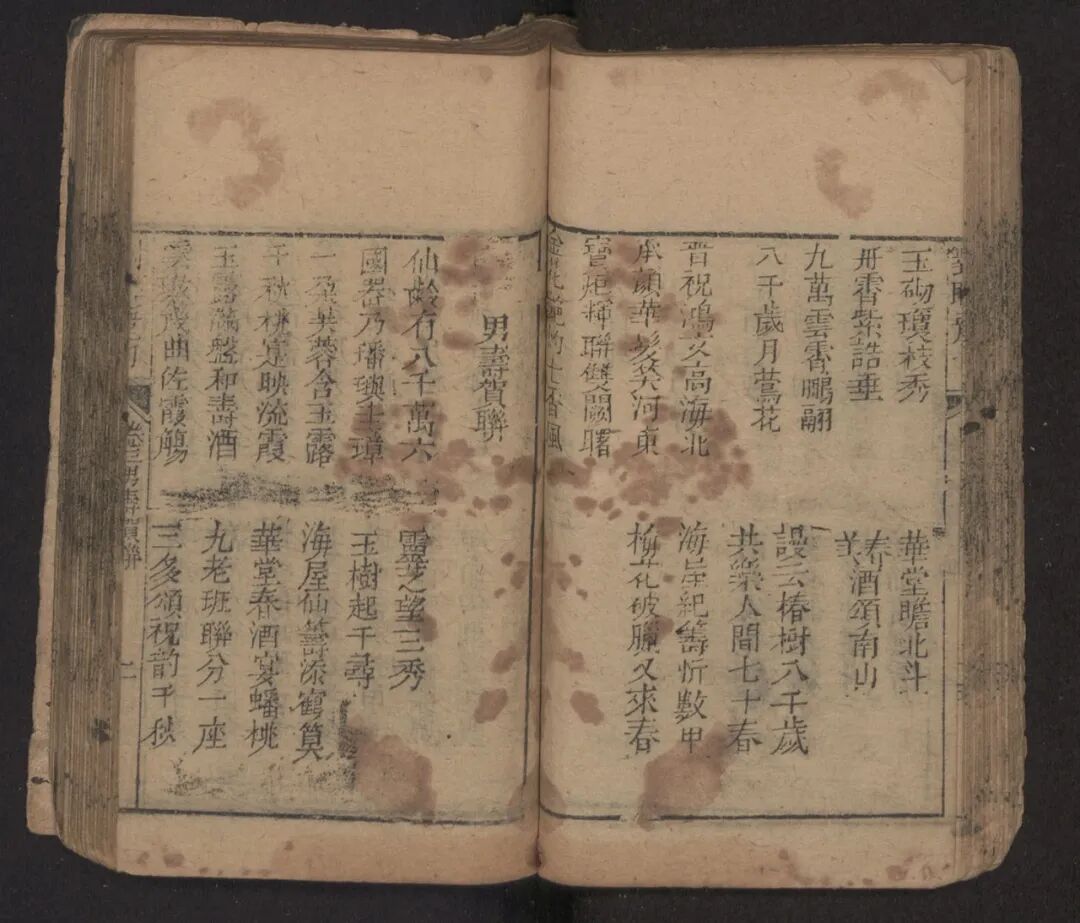 玉砌瓊枝秀
丹霄紫誥垂
九萬雲香鵬翮
八千歲月鶯花
晋祝鴻文高海北
承顔華髮美河東
寶炬輝聯雙闕曙
金花七香風
華堂瞻北斗
春酒頌南山
謾云椿樹八千歲
共樂人間七十春
海屋紀籌忻數甲
梅花破臘又來春
男壽賀聯
仙齡有八千萬六
國器乃璠璵圭璋
一朶芙蓉含玉露
千秋桃實映流霞
玉露滿盤和壽酒
雲璈幾曲佐霞觴
靈芝望三秀
玉樹起千尋
海屋仙籌添鶴筭
華堂春酒宴蟠桃
九老班聯分一座
三多頌祝韵千秋
卷三男壽賀聯